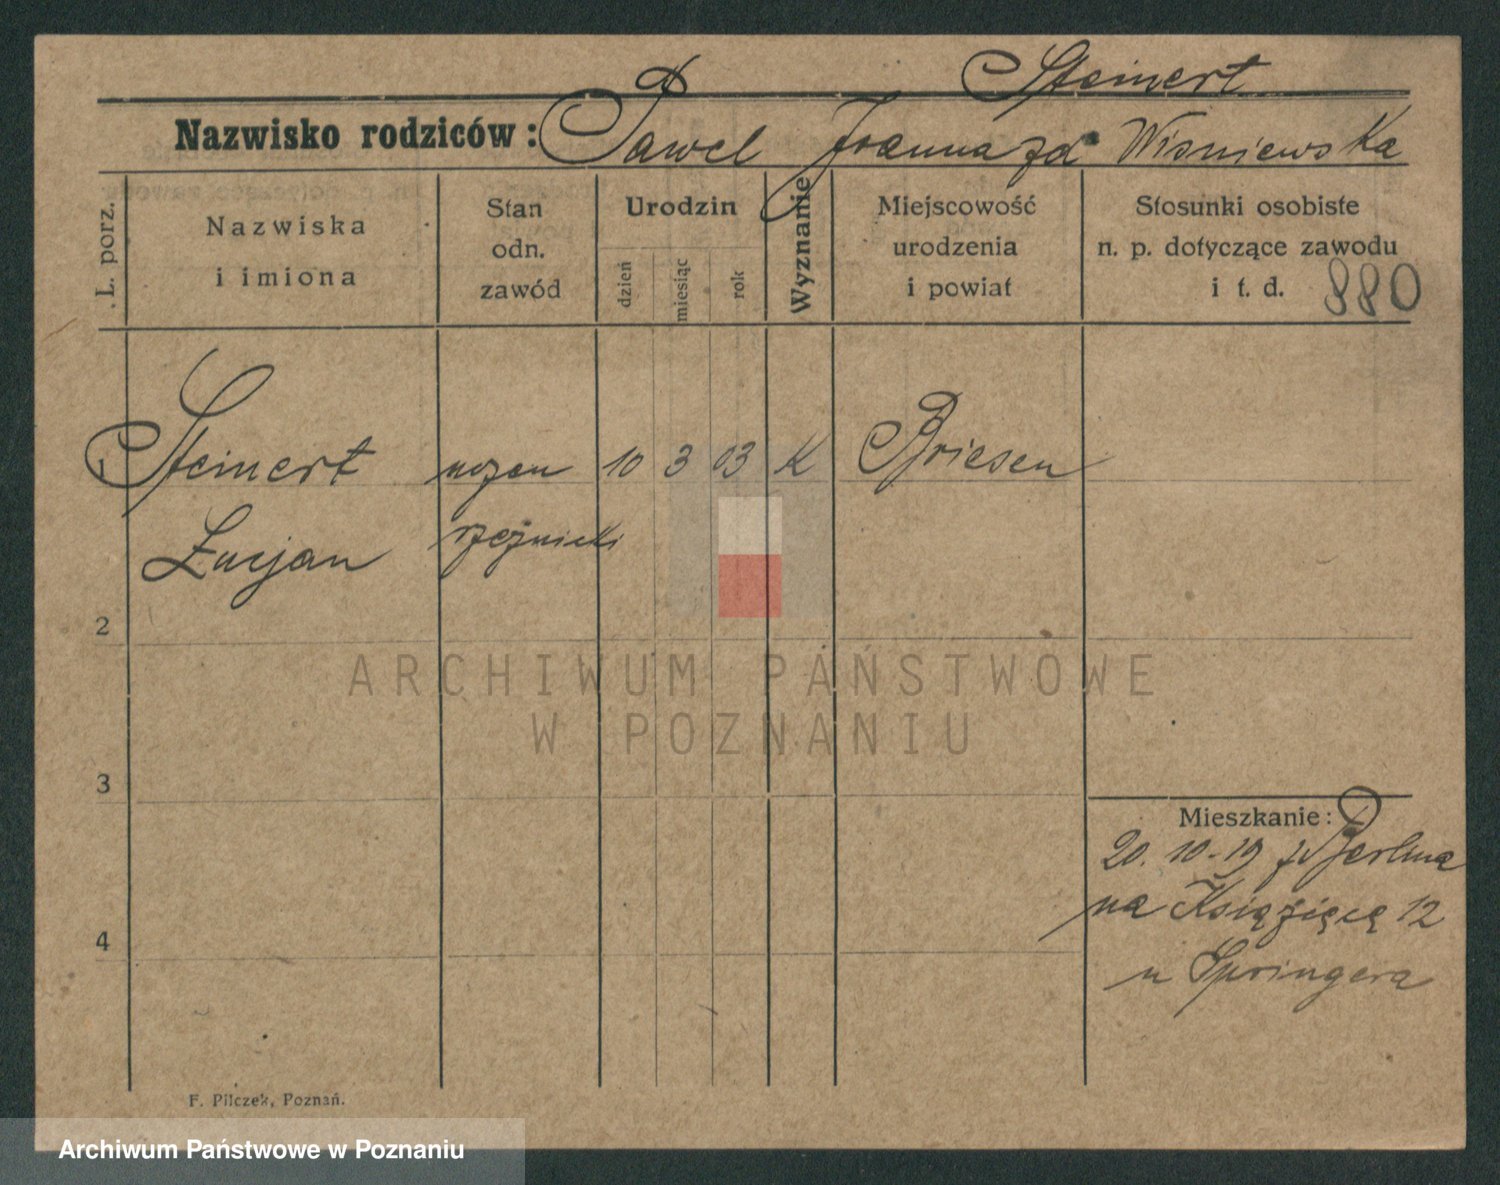 Steinert
Nazwisko rodziców: Paweł Joanna zd Wiśniewska
L. porz.
Nazwiska
i imiona
Stan
odn.
zawód
Urodzin
dzień
miesiąc
rok
Wyznanie
Miejscowość
urodzenia
i powiat
Stosunki osobiste
n. p. dotyczące zawodu
i t. d. 880
1 Steinert uczeń 10 3 03 K Briesen
Łucjan rzeźnicki
2
ARCHIWUM PAŃSTWOWE
W POZNANIU
3
Mieszkanie:
20. 10-19 z Berlina
na Książęcą 12
u Springera
4
F. Pilczek, Poznań.
Archiwum Państwowe w Poznaniu